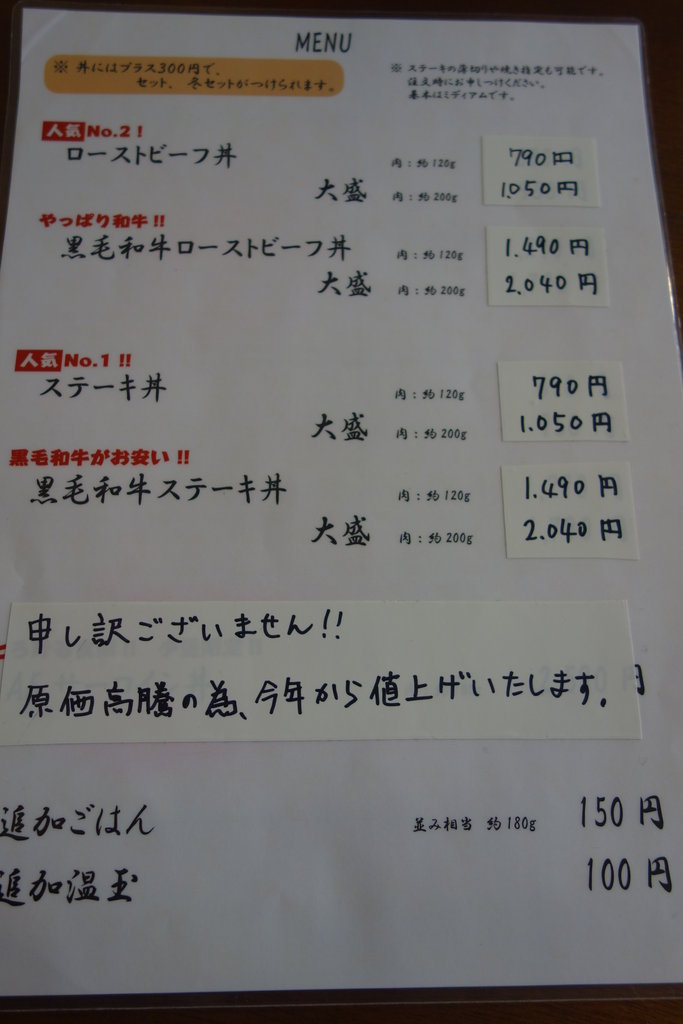 MENU
※ 丼にはプラス300円で、
セット、冬セットがつけられます。
※ ステーキの薄切りや焼き指定も可能です。
注文時にお申しつけください。
基本はミディアムです。
人気No.2!
ローストビーフ丼 肉:約120g 790円
大盛 肉:約200g 1.050円
やっぱり和牛!!
黒毛和牛ローストビーフ丼 肉:約120g 1.490円
大盛 肉:約200g 2.040円
人気No.1!!
ステーキ丼 肉:約120g 790円
大盛 肉:約200g 1.050円
黒毛和牛がお安い!!
黒毛和牛ステーキ丼 肉:約120g 1.490円
大盛 肉:約200g 2.040円
申し訳ございません!!
原価高騰の為、今年から値上げいたします。
円
追加ごはん 並み相当 約180g 150円
追加温玉 100円